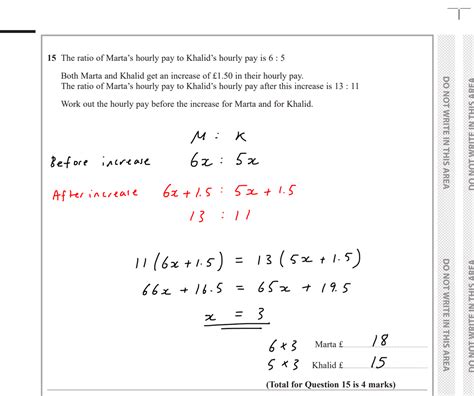 15 The ratio of Marta's hourly pay to Khalid's hourly pay is 6 : 5
Both Marta and Khalid get an increase of £1.50 in their hourly pay.
The ratio of Marta's hourly pay to Khalid's hourly pay after this increase is 13 : 11
Work out the hourly pay before the increase for Marta and for Khalid.
M : K
Before increase 6x : 5x
After increase 6x + 1.5 : 5x + 1.5
13 : 11
11(6x + 1.5) = 13(5x + 1.5)
66x + 16.5 = 65x + 19.5
x = 3
6 × 3 Marta £ 18
5 × 3 Khalid £ 15
(Total for Question 15 is 4 marks)
DO NOT WRITE IN THIS AREA
DO NOT WRITE IN THIS AREA
DO NOT WRITE IN THIS AREA
DO NOT WRITE IN THIS AREA